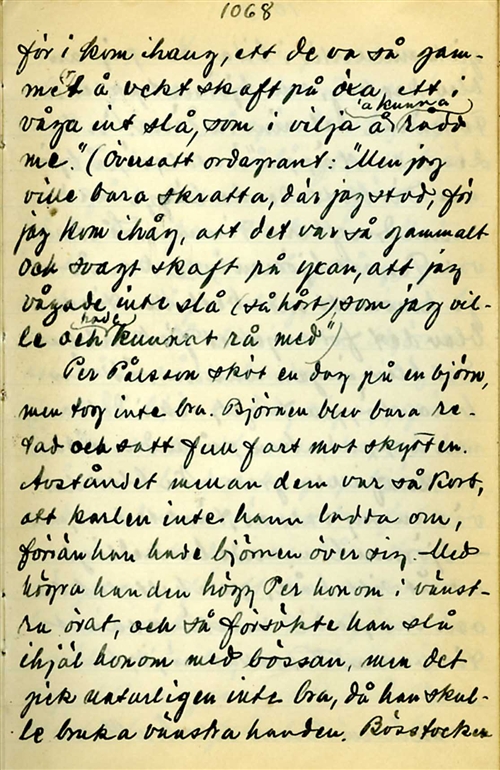 1068
för i kom ihaug, ett de va så gam-
melt å vekt skaft på öxa, ett i
våga int slå, som i vilja å (a kunna) rådd
me." (Översatt ordagrant: "Men jag
ville bara skratta, där jag stod, för
jag kom ihåg, att det var så gammalt
och svagt skaft på yxan, att jag
vågade inte slå (så hårt) som jag vil-
le och hade kunnat rå med")
Per Pålsson sköt en dag på en björn,
men tog inte bra. Björnen blev bara re-
tad och satt full fart mot skytten.
Avståndet mellan dem var så kort,
att karlen inte hann ladda om,
förrän han hade björnen över sig. Med
högra handen högg Per honom i vänst-
ra örat, och så försökte han slå
ihjäl honom med bössan, men det
gick naturligen inte bra, då han skul-
le bruka vänstra handen. Bösstocken